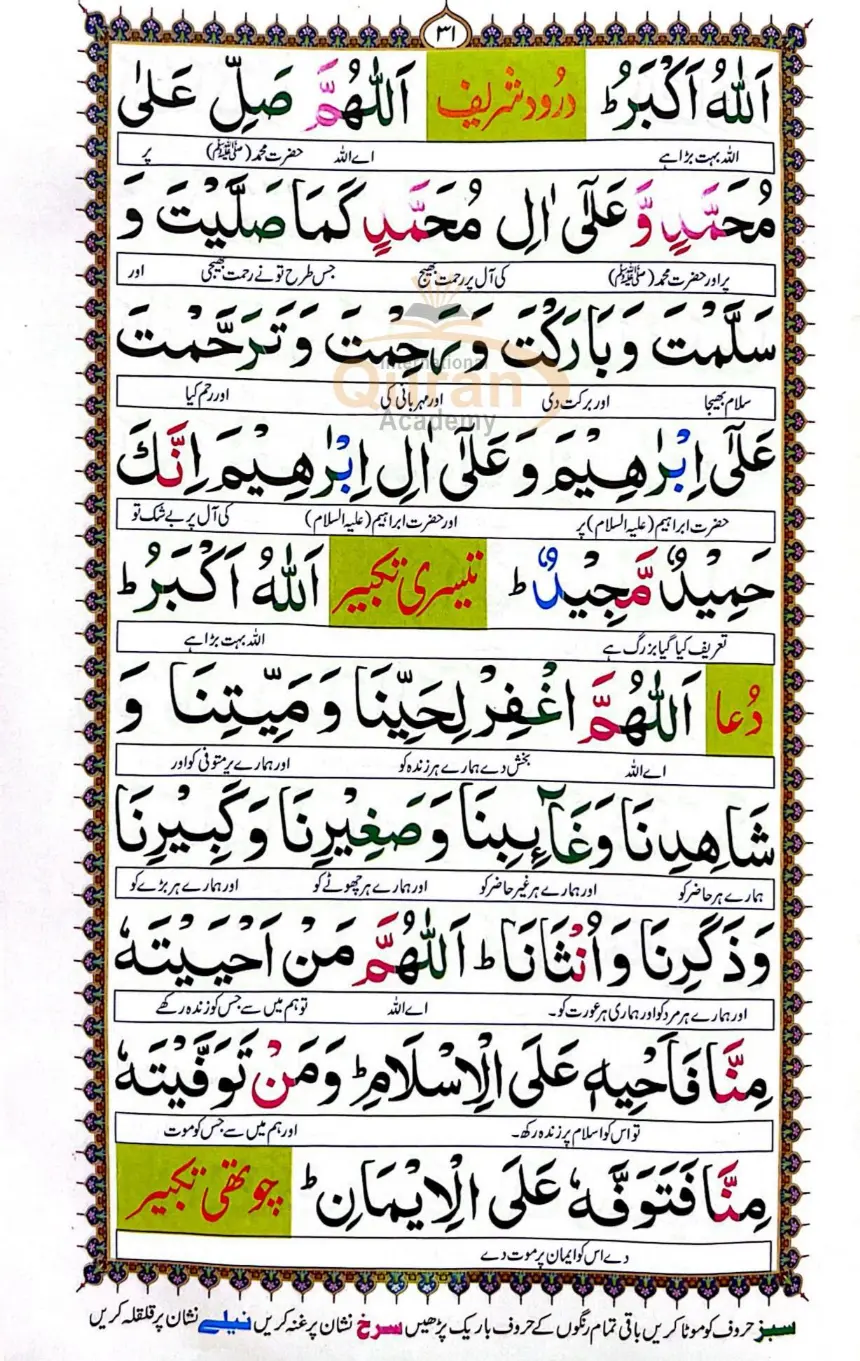 ۳۱
اَللّٰهُ اَکْبَرُ ؕ درود شریف اَللّٰهُمَّ صَلِّ عَلٰی
اللہ بہت بڑا ہے اے اللہ حضرت محمد (ﷺ) پر
مُحَمَّدٍ وَّ عَلٰۤی اٰلِ مُحَمَّدٍ کَمَا صَلَّیْتَ وَ
پر اور حضرت محمد (ﷺ) کی آل پر رحمت بھیج جس طرح تو نے رحمت بھیجی اور
سَلَّمْتَ وَبَارَکْتَ وَرَحِمْتَ وَتَرَحَّمْتَ
سلام بھیجا اور برکت دی اور مہربانی کی اور رحم کیا
International Quran Academy
عَلٰۤی اِبْرٰهِیْمَ وَعَلٰۤی اٰلِ اِبْرٰهِیْمَ اِنَّكَ
حضرت ابراہیم (علیہ السلام) پر اور حضرت ابراہیم (علیہ السلام) کی آل پر بے شک تو
حَمِیْدٌ مَّجِیْدٌ ؕ تیسری تکبیر اَللّٰهُ اَکْبَرُ ؕ
تعریف کیا گیا بزرگ ہے اللہ بہت بڑا ہے
دُعا اَللّٰهُمَّ اغْفِرْ لِحَیِّنَا وَمَیِّتِنَا وَ
اے اللہ بخش دے ہمارے ہر زندہ کو اور ہمارے ہر متوفی کو اور
شَاهِدِنَا وَغَآئِبِنَا وَصَغِیْرِنَا وَکَبِیْرِنَا
ہمارے ہر حاضر کو اور ہمارے ہر غیر حاضر کو اور ہمارے ہر چھوٹے کو اور ہمارے ہر بڑے کو
وَذَکَرِنَا وَاُنْثَانَا ؕ اَللّٰهُمَّ مَنْ اَحْیَیْتَهٗ
اور ہمارے ہر مرد کو اور ہماری ہر عورت کو۔ اے اللہ تو ہم میں سے جس کو زندہ رکھے
مِنَّا فَاَحْیِهٖ عَلَی الْاِسْلَامِ ؕ وَمَنْ تَوَفَّیْتَهٗ
تو اس کو اسلام پر زندہ رکھ۔ اور ہم میں سے جس کو موت
مِنَّا فَتَوَفَّهٗ عَلَی الْاِیْمَانِ ؕ چوتھی تکبیر
دے اس کو ایمان پر موت دے
سبز حروف کو موٹا کریں باقی تمام رنگوں کے حروف باریک پڑھیں سرخ نشان پر غنہ کریں نیلے نشان پر قلقلہ کریں